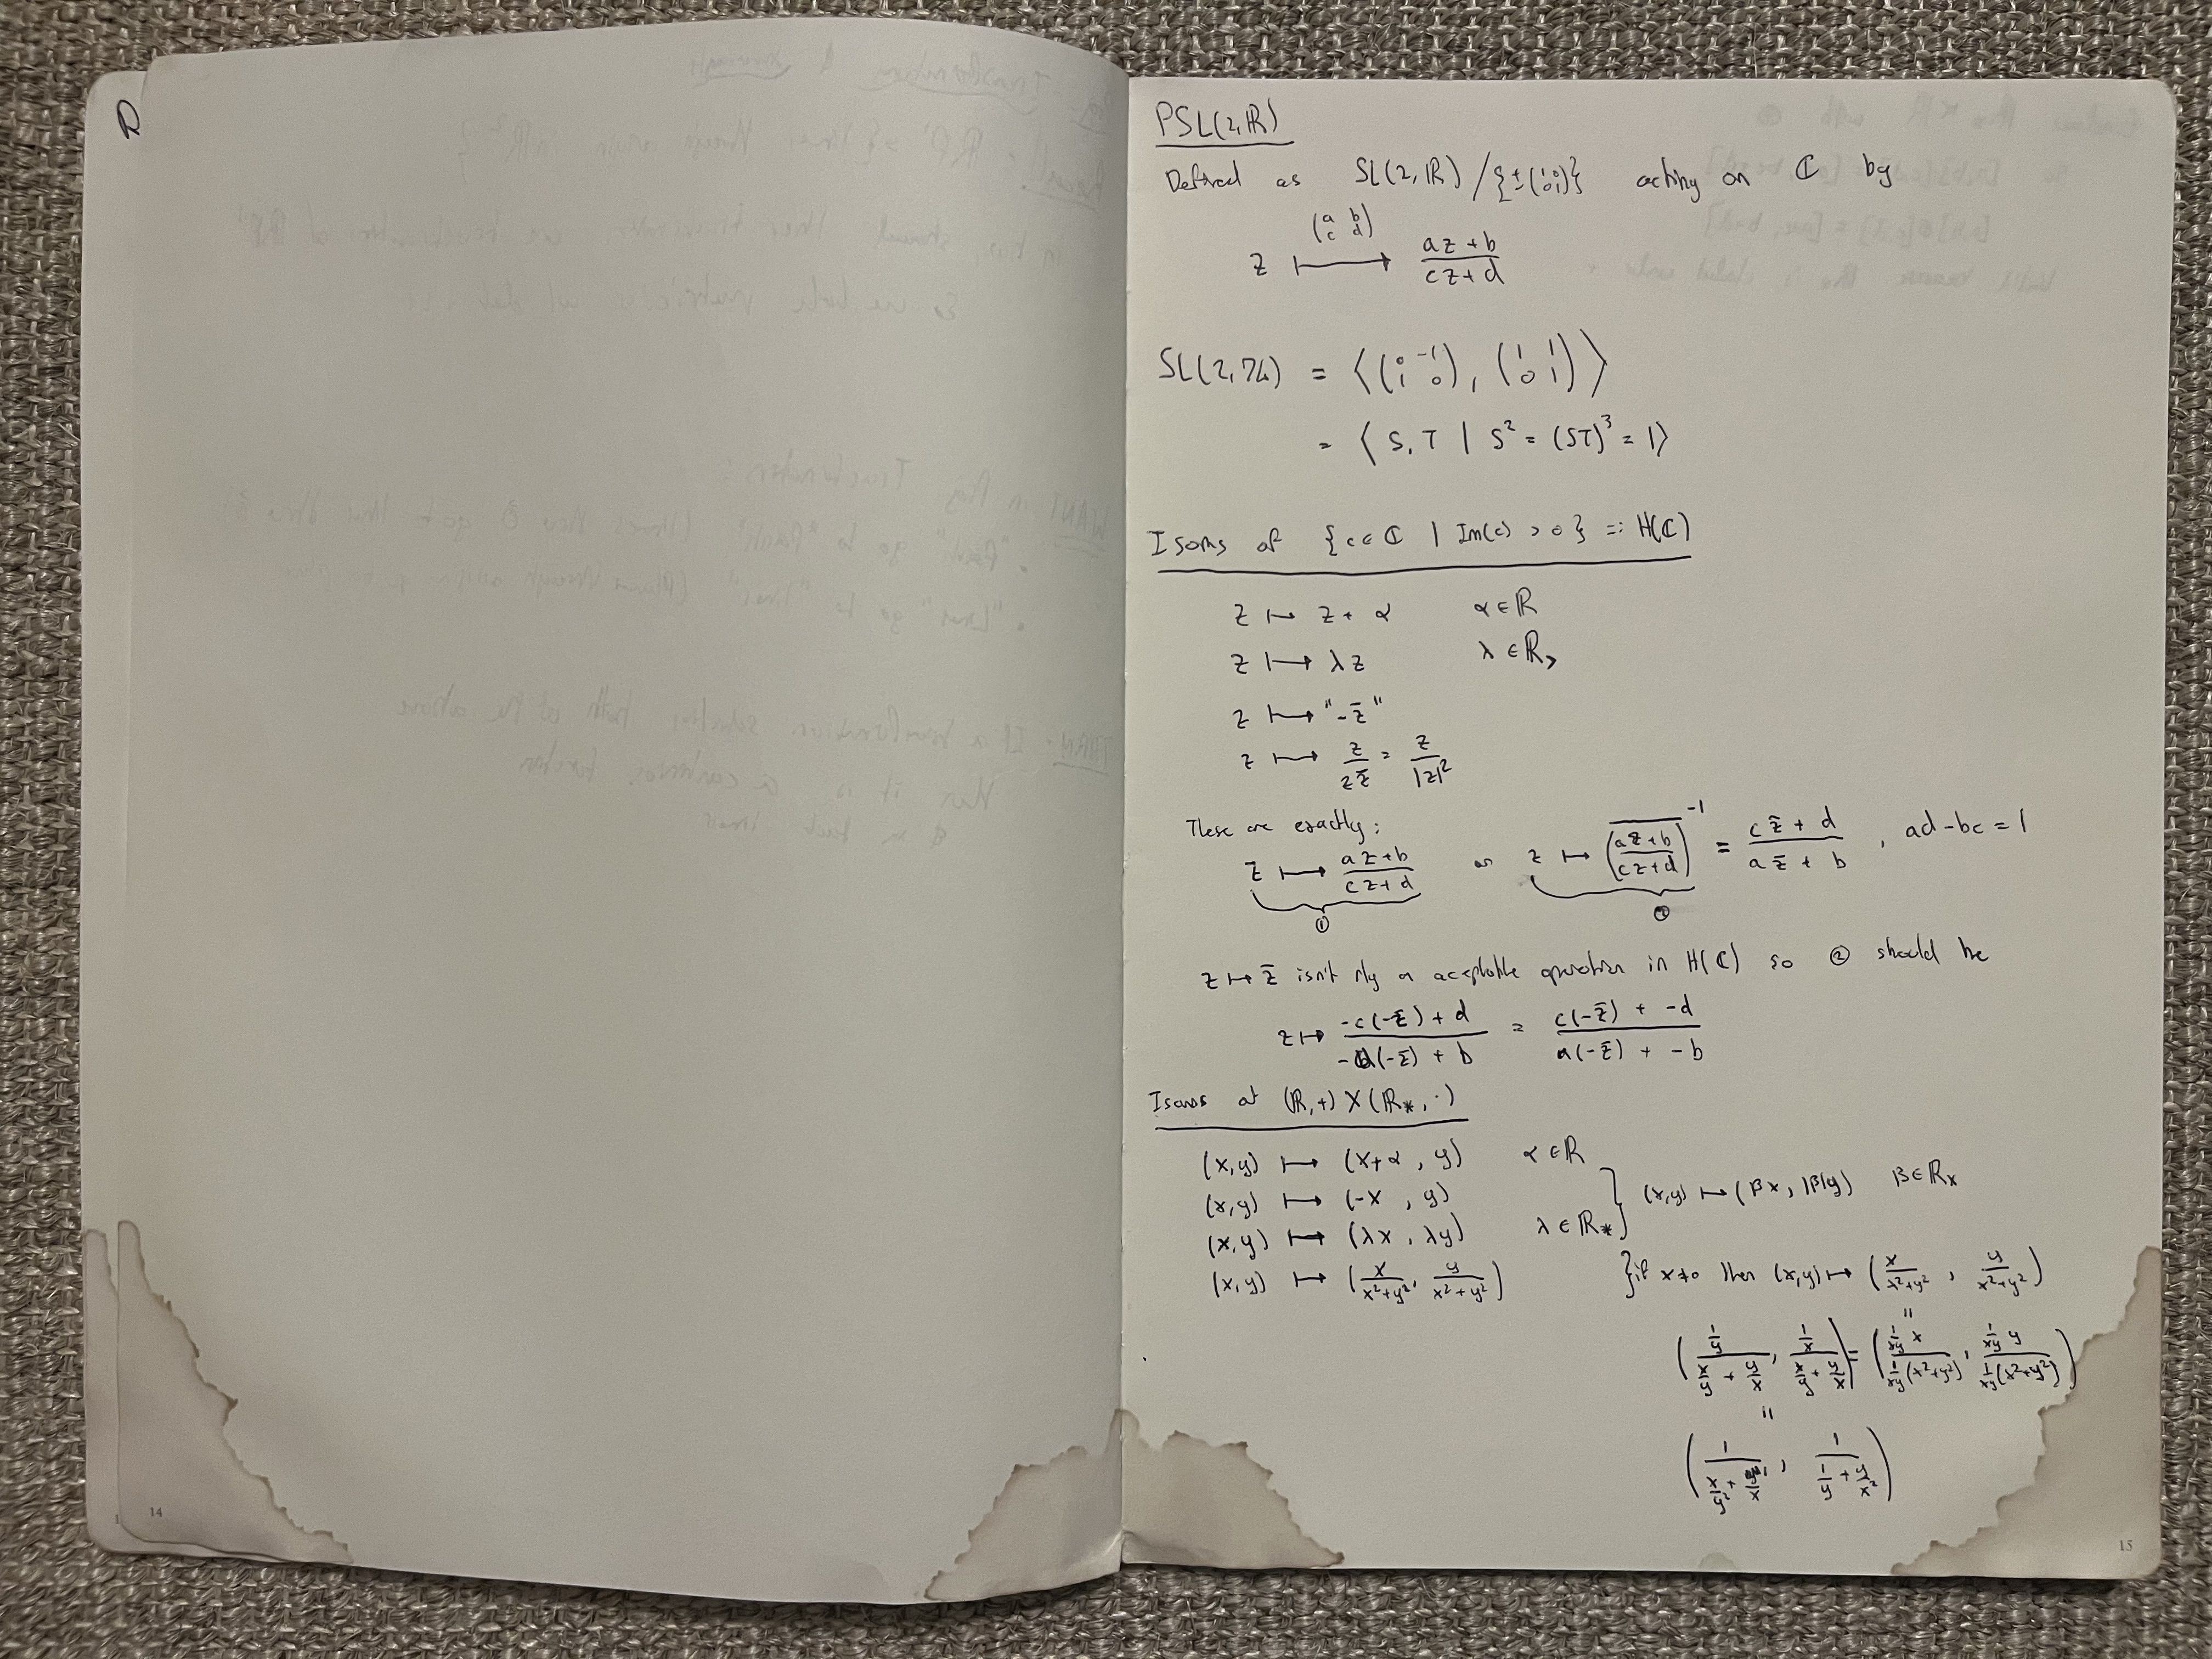 PSL(2,ℝ)
Defined as SL(2,ℝ)/{±(1 0; 0 1)} acting on ℂ by
z ⟼ (a b; c d) (az+b)/(cz+d)
SL(2,ℤ) = ⟨(0 -1; 1 0), (1 1; 0 1)⟩
= ⟨S,T | S² = (ST)³ = 1⟩
Isoms of {c∈ℂ | Im(c) > 0} =: H(ℂ)
z ↦ z + α α∈ℝ
z ⟼ λz λ∈ℝ>
z ⟼ "-z̄"
z ⟼ z/(zz̄) = z/|z|²
These are exactly:
z ⟼ (az+b)/(cz+d) ① or z ↦ \overline{((az+b)/(cz+d))}⁻¹ ② = (cz̄+d)/(az̄+b) , ad-bc=1
z ↦ z̄ isn't rly a acceptable operation in H(ℂ) so ② should be
z ↦ (-c(-z̄)+d)/(-a(-z̄)+b) = (c(-z̄)+-d)/(a(-z̄)+-b)
Isoms of (ℝ,+)×(ℝ*,·)
(x,y) ⟼ (x+α, y) α∈ℝ
(x,y) ⟼ (-x, y)
(x,y) ⟼ (λx, λy) λ∈ℝ* } (x,y) ↦ (βx, |β|y) β∈ℝx
(x,y) ⟼ (x/(x²+y²), y/(x²+y²)) {if x≠0 then (x,y) ↦ (x/(x²+y²), y/(x²+y²))
"
((1/y)/(x/y + y/x), (1/x)/(x/y + y/x)) = ((1/xy)x/((1/xy)(x²+y²)), (1/xy)y/((1/xy)(x²+y²)))
"
(1/(x + y²/x), 1/(y + x²))
14
15